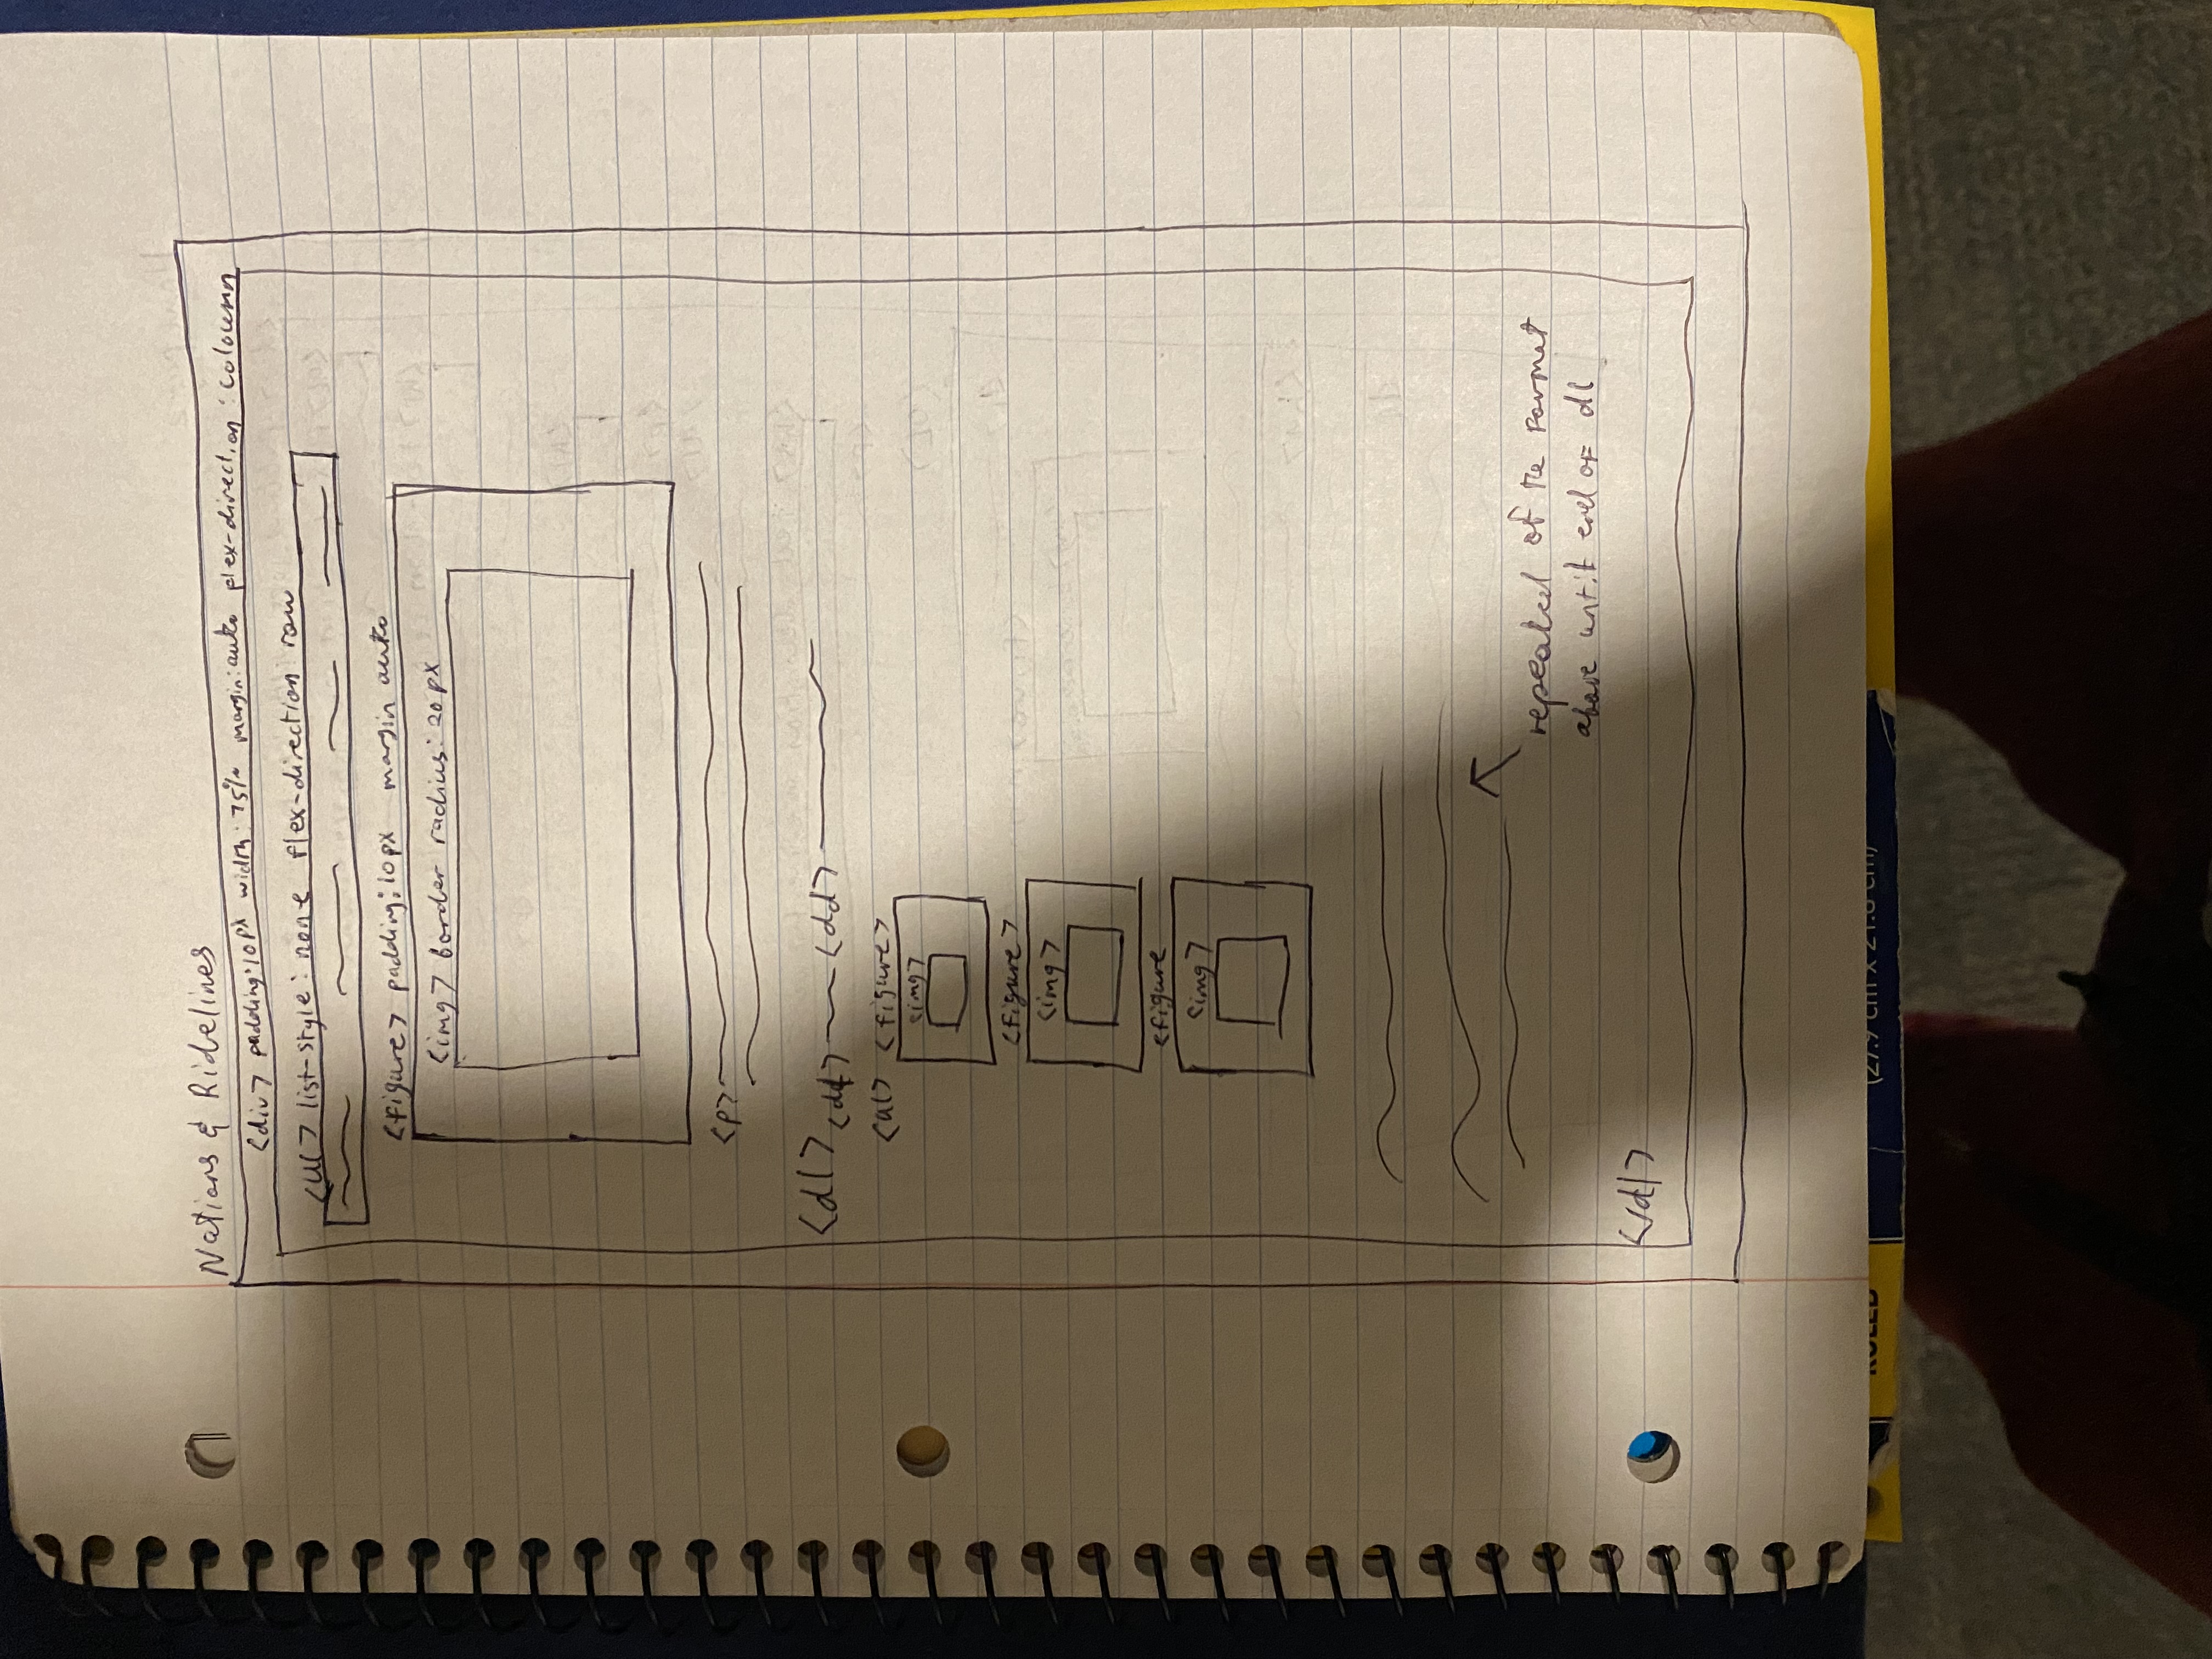 Nations & Ridelines
<div> padding:10px width: 75% margin:auto flex-direction: coloumn
<ul> list-style: none flex-direction row
<figure> padding:10px margin auto
<img> border radius: 20px
<p>
<dl> <dt> <dd>
<ul> <figure>
<img>
<figure>
<img>
<figure
<img>
repeated of the format
above until end of dl
</dl>
RULED (27.9 cm x 21.6 cm)